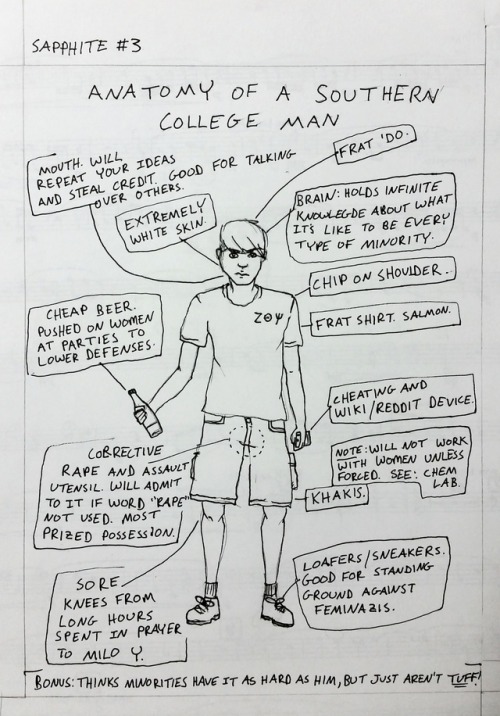 SAPPHITE #3
ANATOMY OF A SOUTHERN
COLLEGE MAN
MOUTH. WILL
REPEAT YOUR IDEAS
AND STEAL CREDIT. GOOD FOR TALKING
OVER OTHERS.
FRAT 'DO.
EXTREMELY
WHITE SKIN.
BRAIN: HOLDS INFINITE
KNOWLEGDE ABOUT WHAT
IT'S LIKE TO BE EVERY
TYPE OF MINORITY.
CHIP ON SHOULDER.
CHEAP BEER.
PUSHED ON WOMEN
AT PARTIES TO
LOWER DEFENSES.
ΖΘΨ
FRAT SHIRT. SALMON.
CHEATING AND
WIKI/REDDIT DEVICE.
COBRECTIVE
RAPE AND ASSAULT
UTENSIL. WILL ADMIT
TO IT IF WORD "RAPE"
NOT USED. MOST
PRIZED POSSESSION.
NOTE: WILL NOT WORK
WITH WOMEN UNLESS
FORCED. SEE: CHEM
LAB.
KHAKIS.
SORE
KNEES FROM
LONG HOURS
SPENT IN PRAYER
TO MILO Y.
LOAFERS/SNEAKERS.
GOOD FOR STANDING
GROUND AGAINST
FEMINAZIS.
BONUS: THINKS MINORITIES HAVE IT AS HARD AS HIM, BUT JUST AREN'T TUFF!